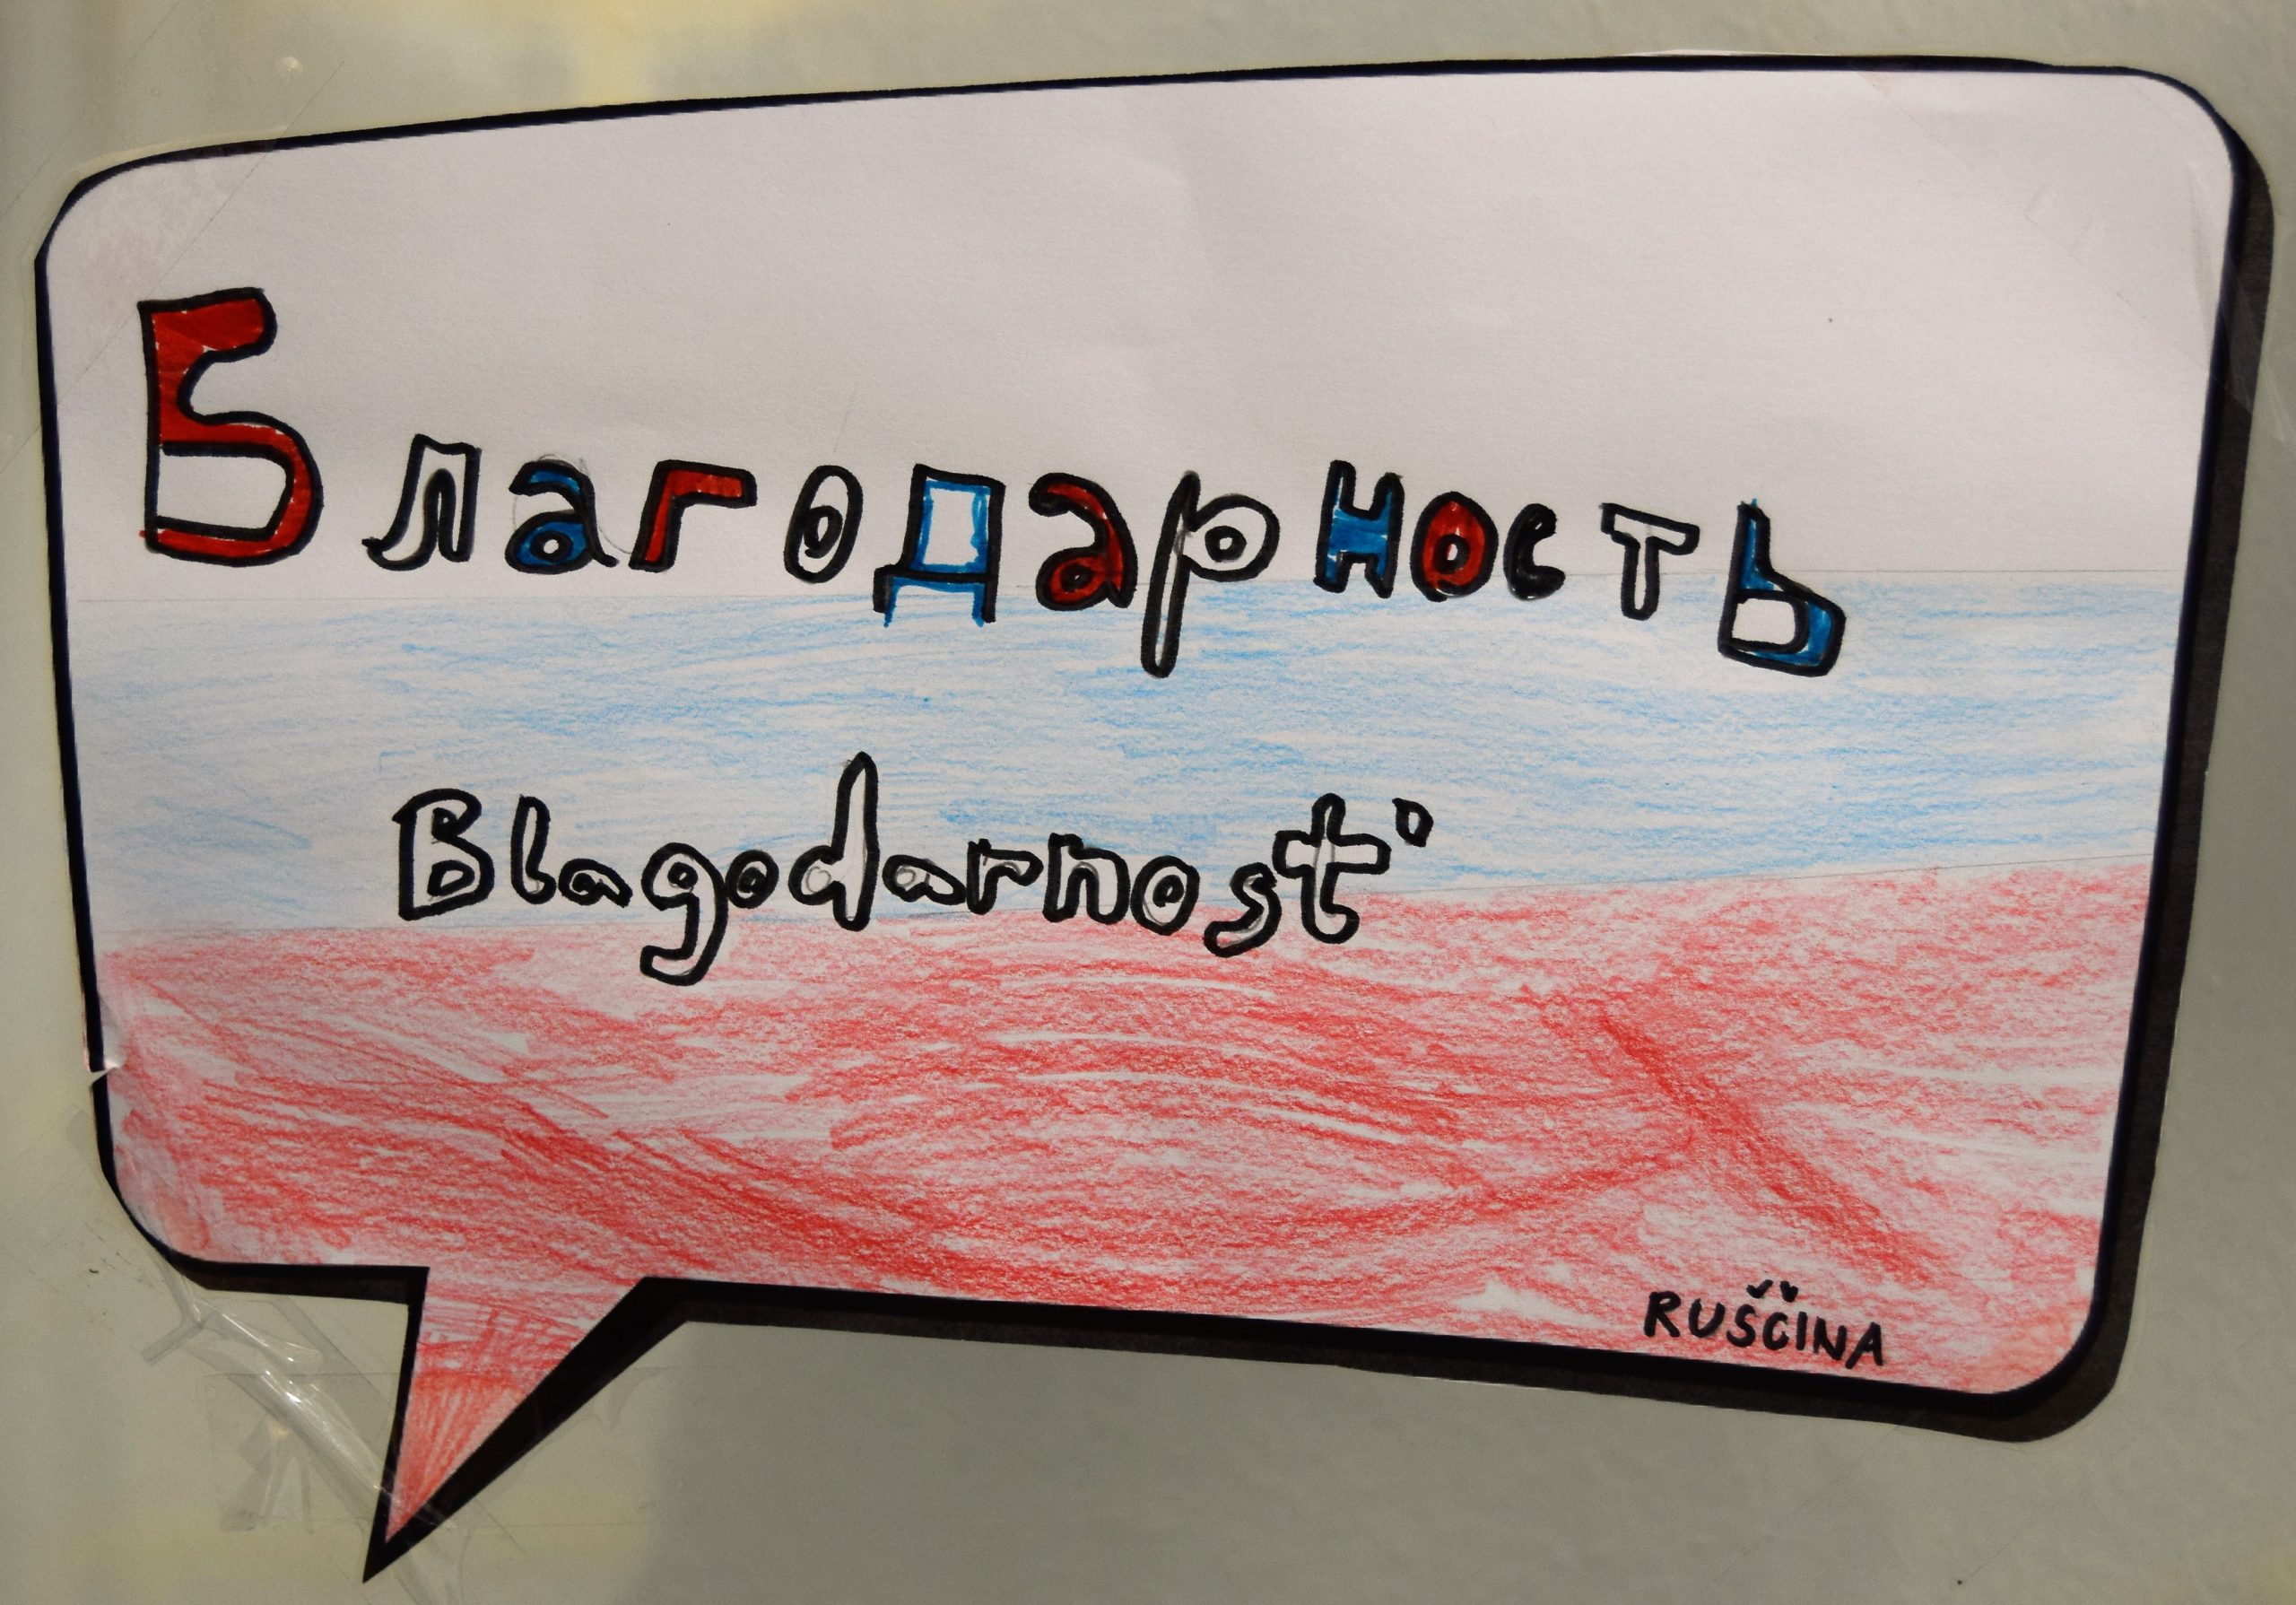 Благодарность
Blagodarnost'
RUŠČINA